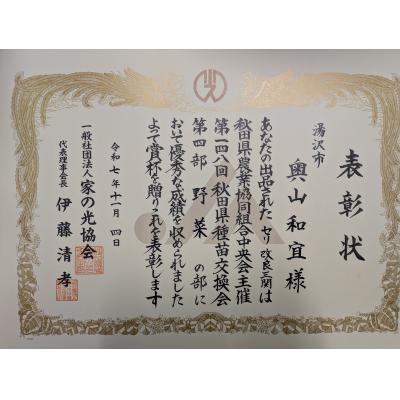 表彰状
湯沢市
奥山和宜様
あなたの出品されたセリ 改良三関は
秋田県農業協同組合中央会主催
第一四八回秋田県種苗交換会
第四部 野菜 の部に
おいて優秀な成績を収められました
よって賞杯を贈りこれを表彰します
令和七年十一月 四日
一般社団法人 家の光協会
代表理事会長 伊藤清孝